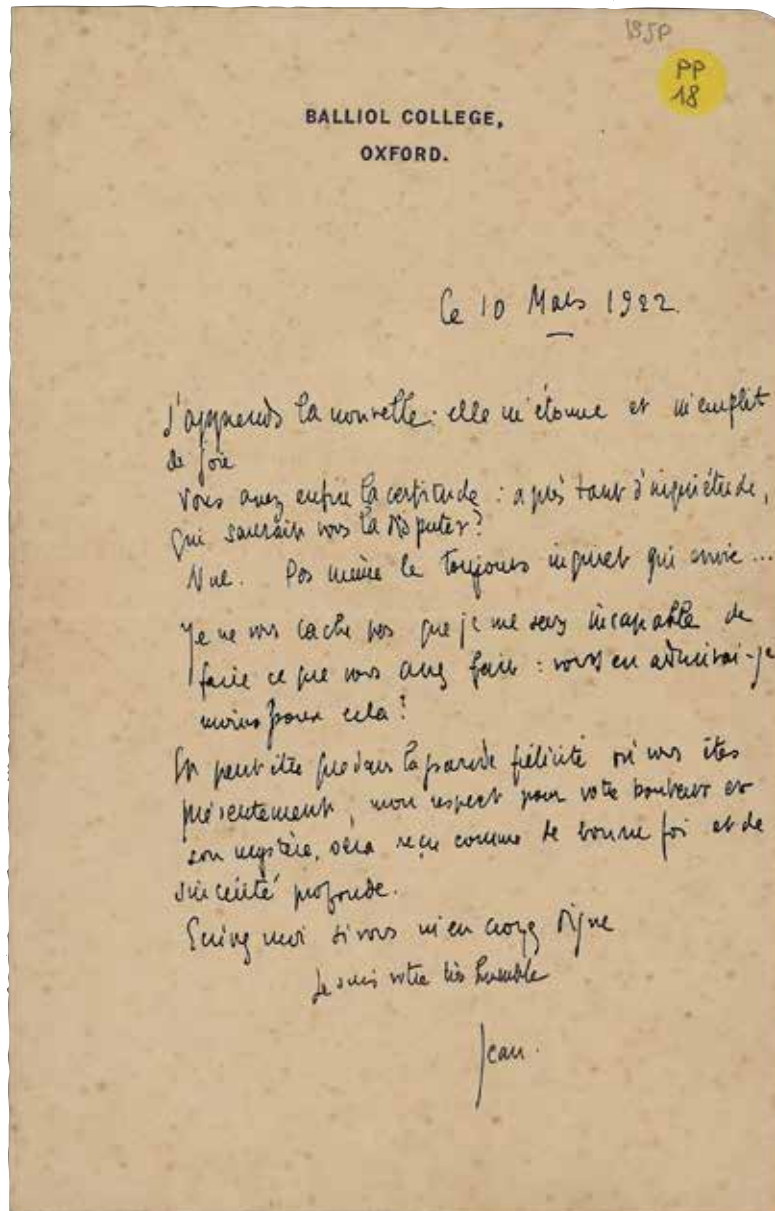 195P
PP
18
BALLIOL COLLEGE,
OXFORD.
Ce 10 Mars 1922.
J'apprends la nouvelle : elle m'étonne et m'emplit
de joie
Vous avez enfin la certitude : après tant d'inquiétude,
qui saurait vous la disputer ?
Nul. Pas même le toujours inquiet qui envie ...
Je ne vous cache pas que je me sens incapable de
faire ce que vous avez fait : vous en admirai-je
moins pour cela ?
Et peut être que dans la grande félicité où vous êtes
présentement, mon respect pour votre bonheur et
son mystère, sera reçu comme de bonne foi et de
sincérité profonde.
Ecrivez moi si vous m'en croyez digne
Je suis votre très humble
Jean.